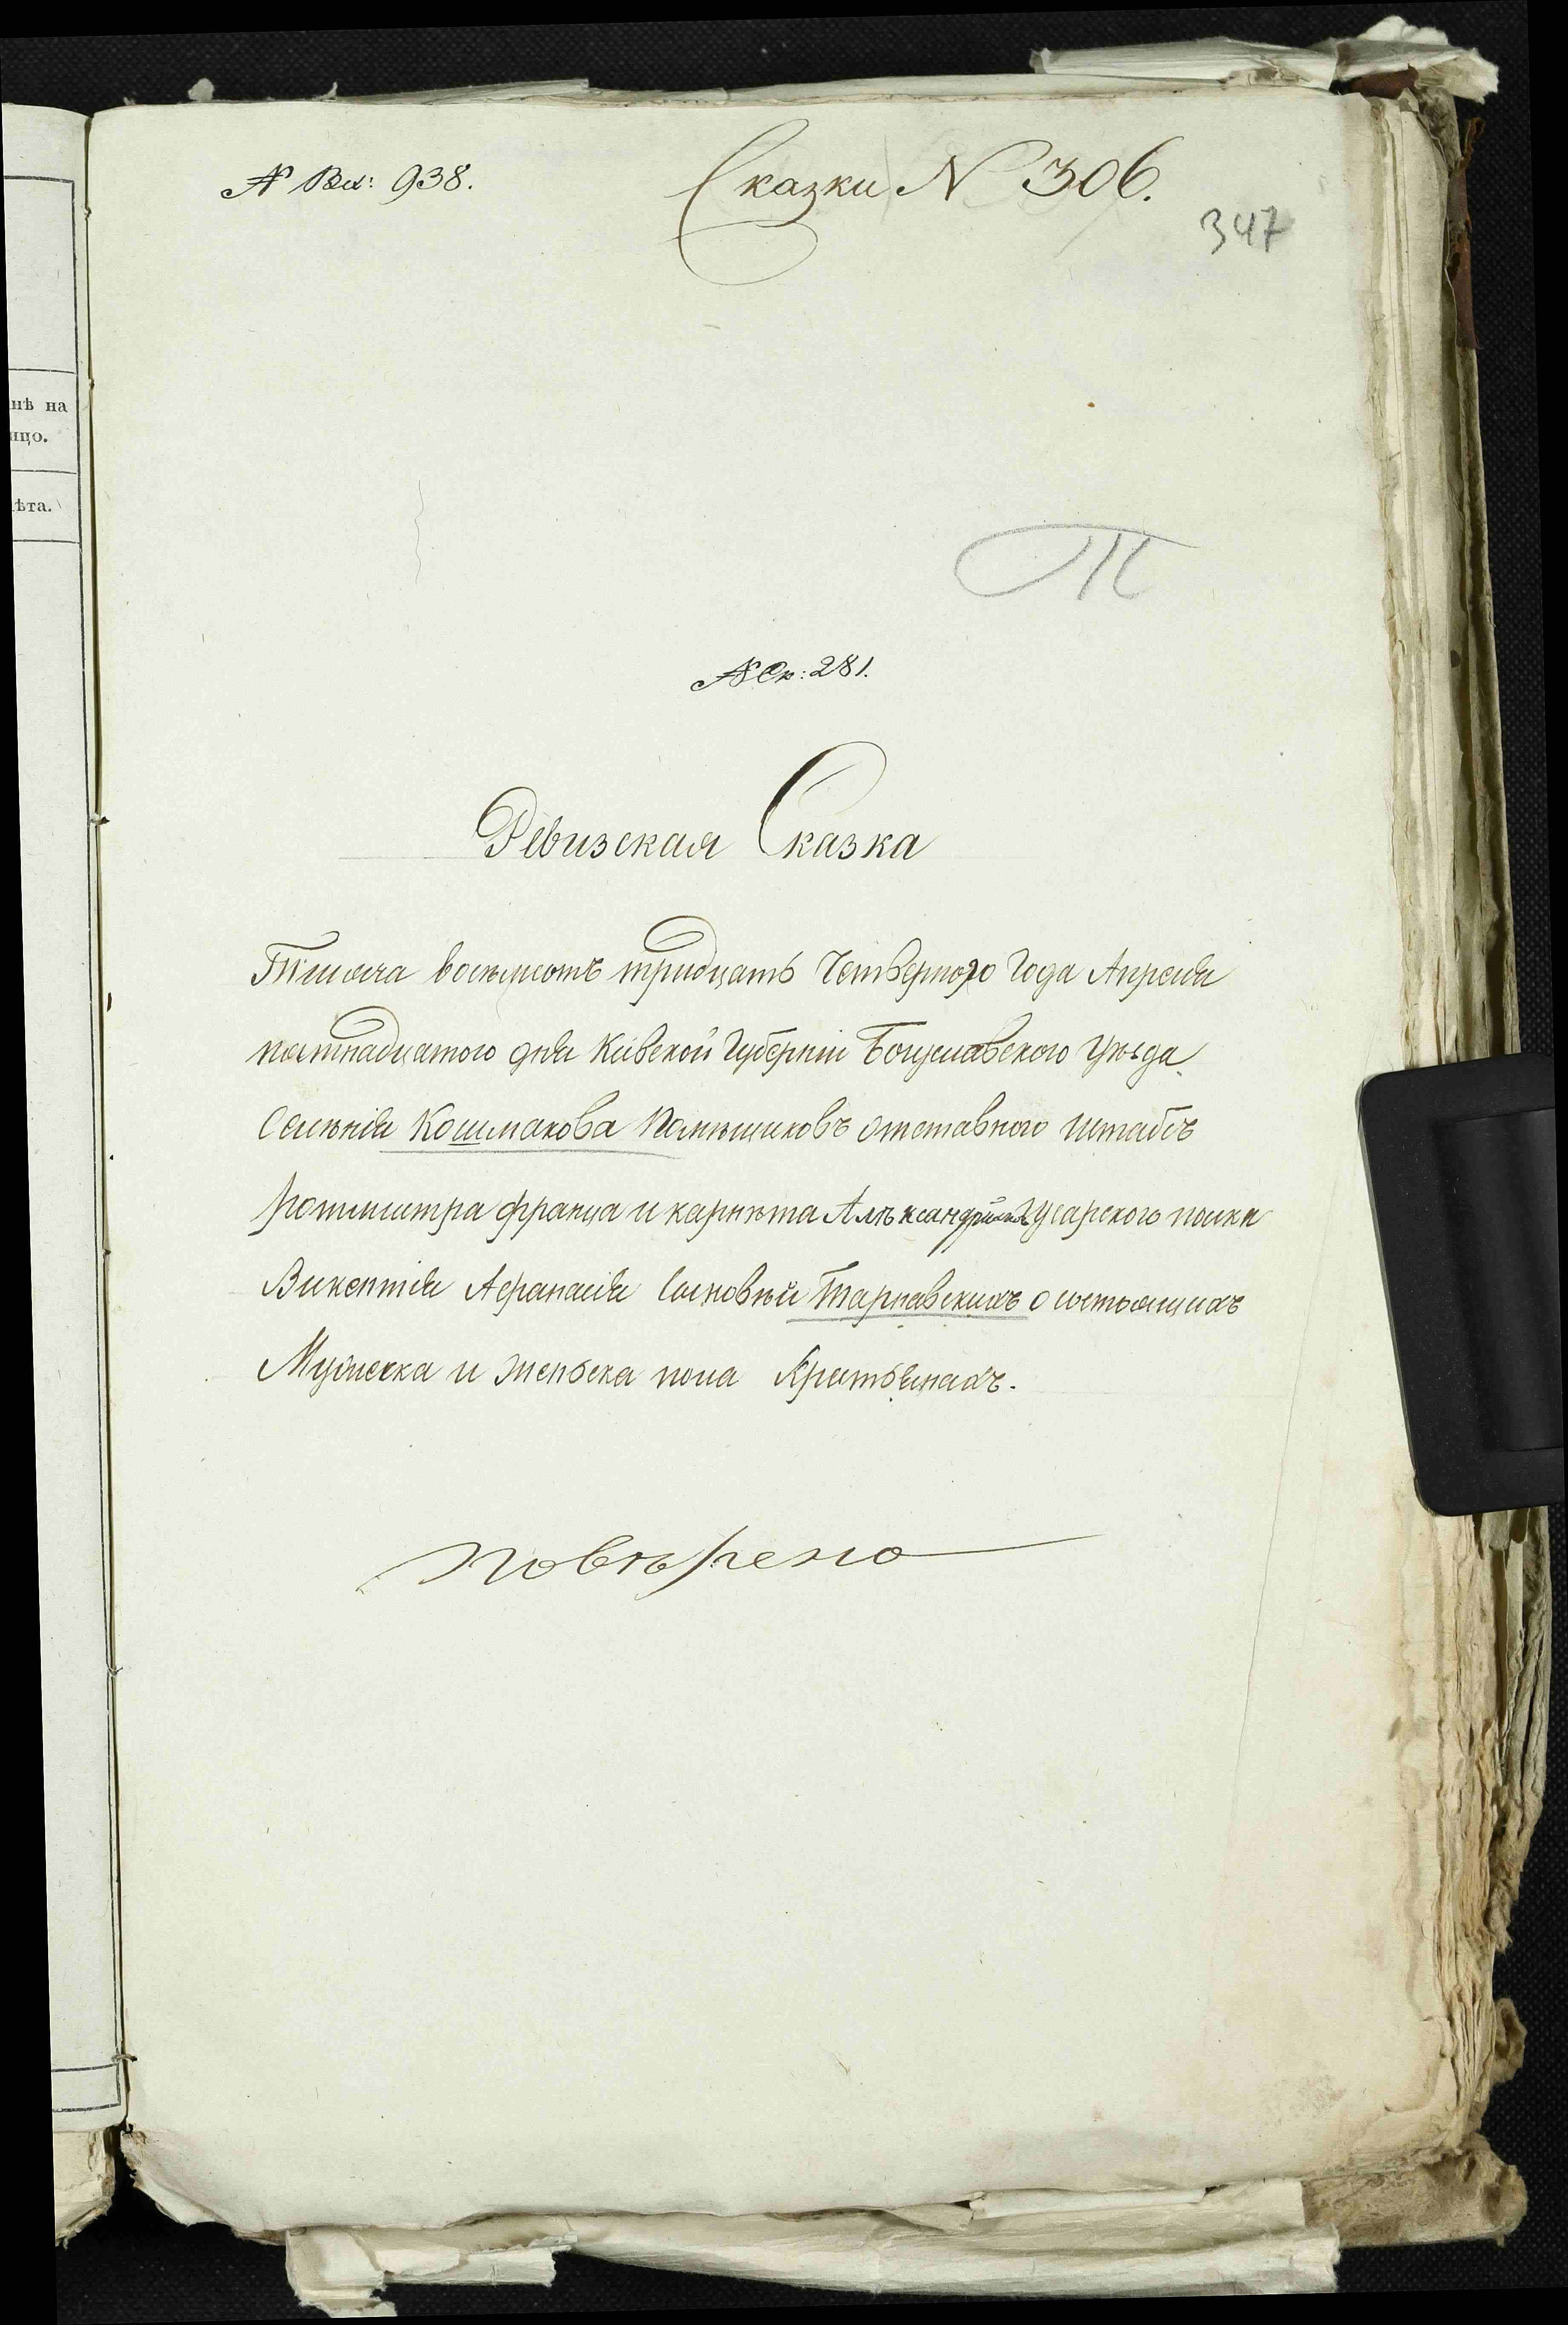 № Вх: 938.
Сказки № 306.
347
Т
нѣ на
ицо.
ѣта.
№ Ок: 281.
Ревизская Сказка
Тысяча восемьсотъ тридцать Четвертого Года Апреля
пятнадцатого дня Кіевской Губерніи Богуславского Уѣзда
Селѣнія Кошмакова Помѣщиковъ отставного штабъ
ротмистра франца и карнѣта Алѣксандрійск Гусарского полка
Викентія Афанасія Сыновѣй Тарнавскихъ о состоящихъ
Мужеска и женьска пола Крестьянахъ.
повѣрено